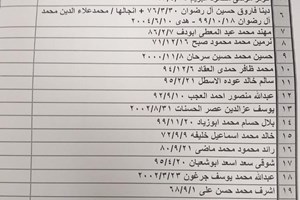 ٦ دينا فاروق حسين آل رضوان ٧٦/٣/٣٠ + انجالها / محمدعلاء الدين محمد
آل رضوان ٩٩/١٠/١٨ - هدى ٢٠٠٤/٦/١٠
٧ مهند محمد عبد المعطي ابودف ٨٦/٢/٧
٨ نرمين محمد محمود صبح ٧١/١٢/١٦
٩ حسين محمد حسين سرحان ٢٠٠٠/١١/٨
١٠ محمد ظافر حمدى العقاد ٩٤/١٢/٦
١١ سالم خالد عوده الاسطل ٩٥/٢/١
١٢ عبدالله منصور احمد العجب ٩٢/٩/١٠
١٣ يوسف عزالدين عصر الحسنات ٢٠٠٢/٨/٣١
١٤ بلال حسام محمد ابوزياد ٩٩/١١/٢٠
١٥ خالد محمد اسماعيل خليفه ٧٢/٩/٩
١٦ رائد محمود محمد ماضى ٨٠/٩/٢١
١٧ شوقي سعد اسعد ابوشعبان ٩٥/٤/٢٠
١٨ عبدالله محمد يوسف جرغون ٢٠٠٢/٣/٢٣
١٩ اشرف محمد حسن على ٦٨/٩/١